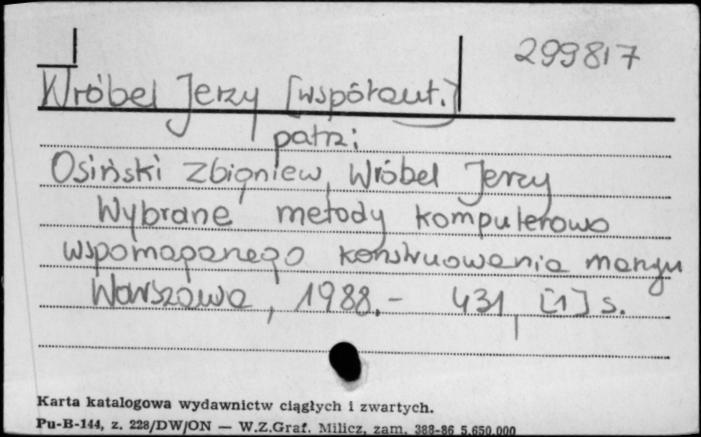 299817
Wróbel Jerzy [współaut.]
patrz:
Osiński Zbigniew, Wróbel Jerzy
Wybrane metody komputerowo
wspomaganego konstruowania maszyn
Warszawa, 1988.- 431, [1] s.
Karta katalogowa wydawnictw ciągłych i zwartych.
Pu-B-144, z. 228/DW/ON — W.Z.Graf. Milicz, zam. 388-86 5.650.000